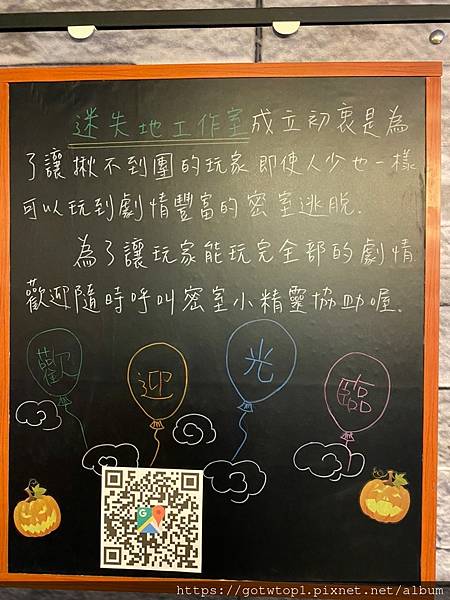 迷失地工作室成立初衷是為
了讓揪不到團的玩家即使人少也一樣
可以玩到劇情豐富的密室逃脫.
為了讓玩家能玩完全部的劇情
歡迎隨時呼叫密室小精靈協助喔.
歡迎光臨
https://gotwtop1.pixnet.net/album